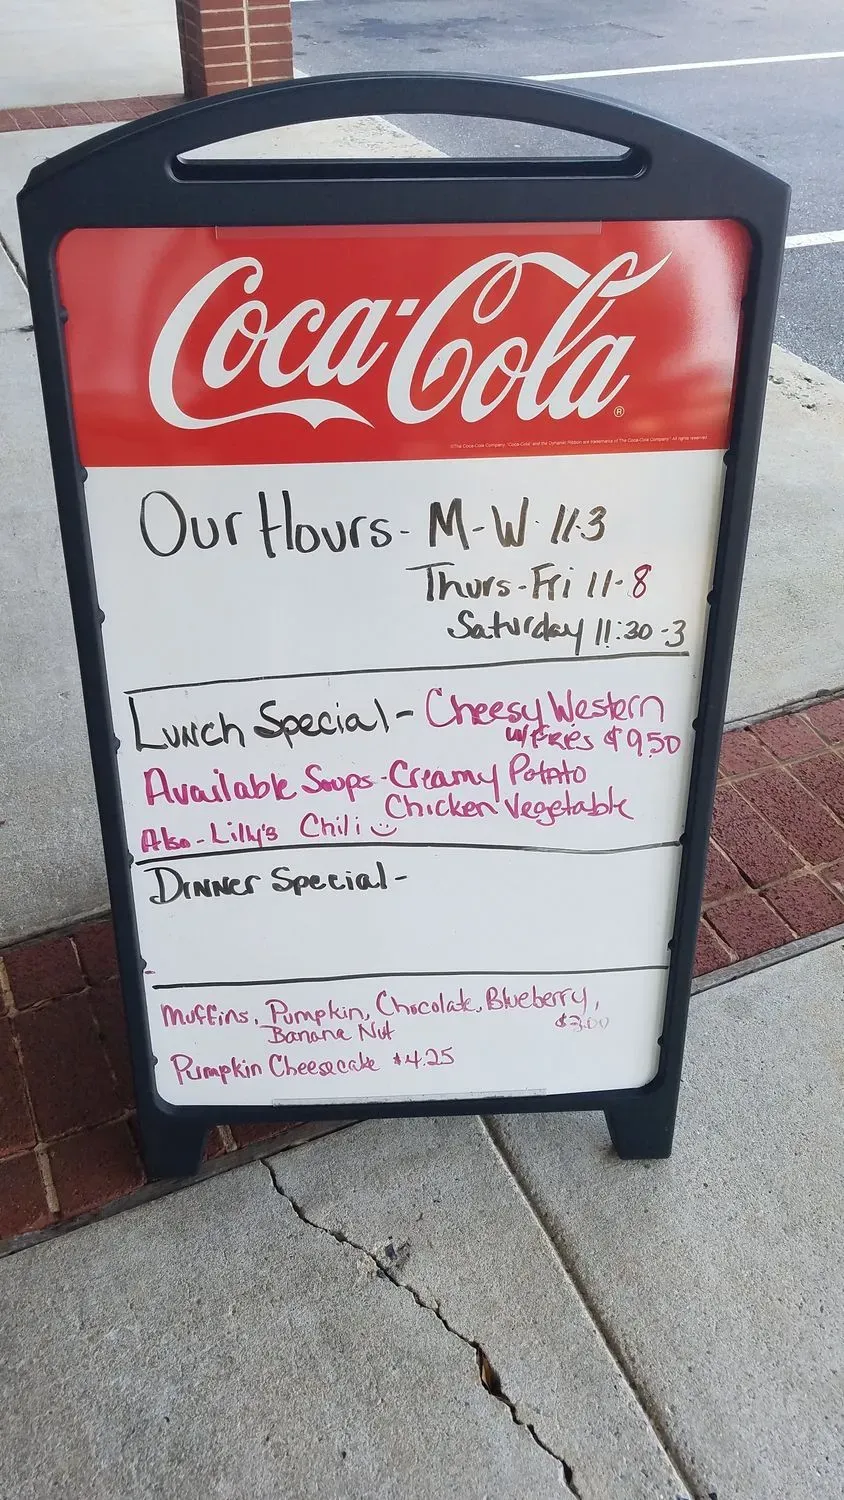 Coca-Cola ®
©The Coca-Cola Company. "Coca-Cola" and the Dynamic Ribbon are trademarks of The Coca-Cola Company. All rights reserved
Our Hours - M-W 11-3
Thurs-Fri 11-8
Saturday 11:30-3
Lunch Special - Cheesy Western
w/Fries $9.50
Available Soups - Creamy Potato
Chicken Vegetable
Also - Lilly's Chili
Dinner Special -
Muffins, Pumpkin, Chocolate, Blueberry,
Banana Nut $3.00
Pumpkin Cheesecake $4.25